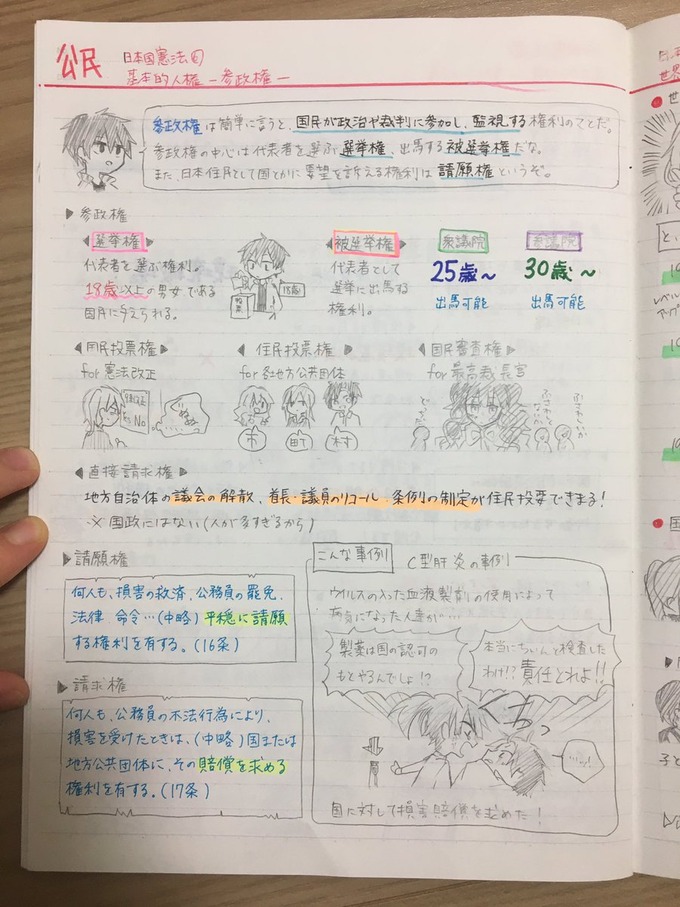 公民
日本国憲法⑥
基本的人権 －参政権－
参政権は簡単に言うと、国民が政治や裁判に参加し、監視する権利のことだ。
参政権の中心は代表者を選ぶ選挙権、出馬する被選挙権だな。
また、日本住民として国とかに要望を訴える権利は請願権というぞ。
▶参政権
◀選挙権▶
代表者を選ぶ権利。
18歳以上の男女である
国民に与えられる。
投票
18歳!
◀被選挙権▶
代表者として
選挙に出馬する
権利。
衆議院
25歳〜
出馬可能
参議院
30歳〜
出馬可能
◀国民投票権▶
for 憲法改正
No
◀住民投票権▶
for 各地方公共団体
市
町
村
◀国民審査権▶
for 最高裁長官
◀直接請求権▶
地方自治体の議会の解散、首長・議員のリコール、条例の制定が住民投票できる!
※国政にはない(人が多すぎるから)
▶請願権
何人も、損害の救済、公務員の罷免、
法律 命令…(中略)平穏に請願
する権利を有する。(16条)
▶請求権
何人も、公務員の不法行為により、
損害を受けたときは、(中略)国または
地方公共団体に、その賠償を求める
権利を有する。(17条)
こんな事例
C型肝炎の事例
ウイルスの入った血液製剤の使用によって
病気になった人達が…
製薬は国の認可の
もとやるんでしょ!?
本当にちゃんと検査した
わけ!?責任とれよ!!
国に対して損害賠償を求めた!